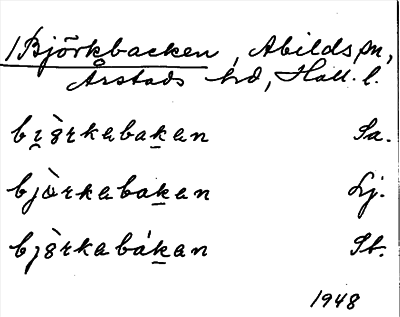 1 Björkbacken, Abilds sn,
Årstads hd, Hall. l.
bi̯ö̀rkabak̲an Sa.
bjö̀rkabak̲an Lj.
bjö̀rkabák̲an St.
1948